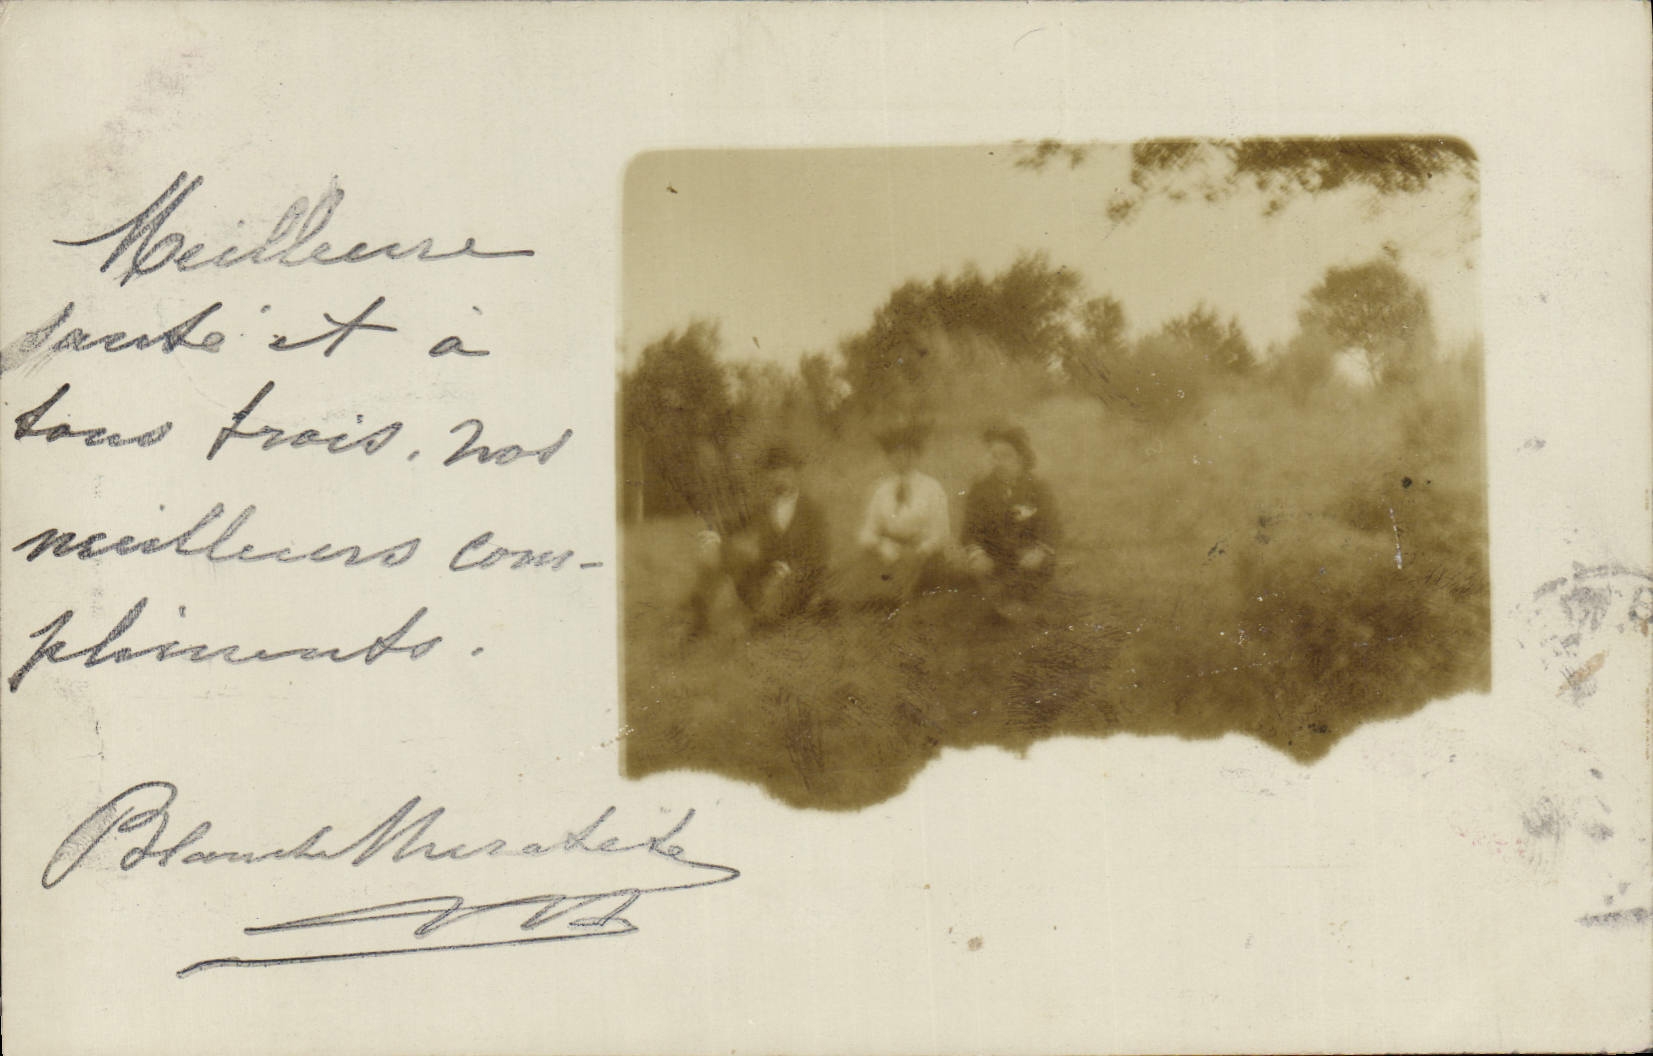 Meilleure
santé et à
tous trois. nos
meilleurs com-
pliments.
Blanche